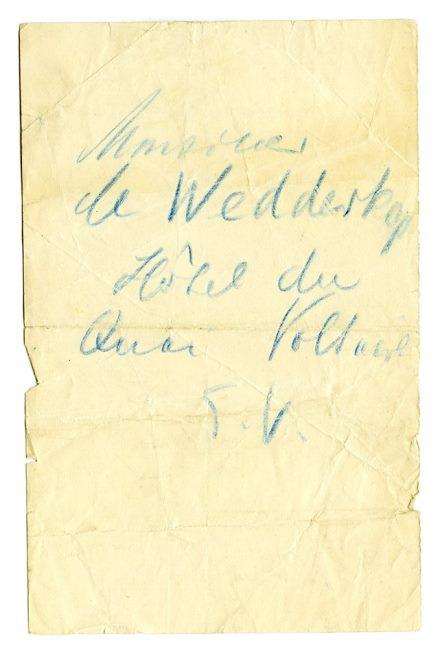 Monsieur
de Wedderkop
Hôtel du
Quai Voltaire
E.V.